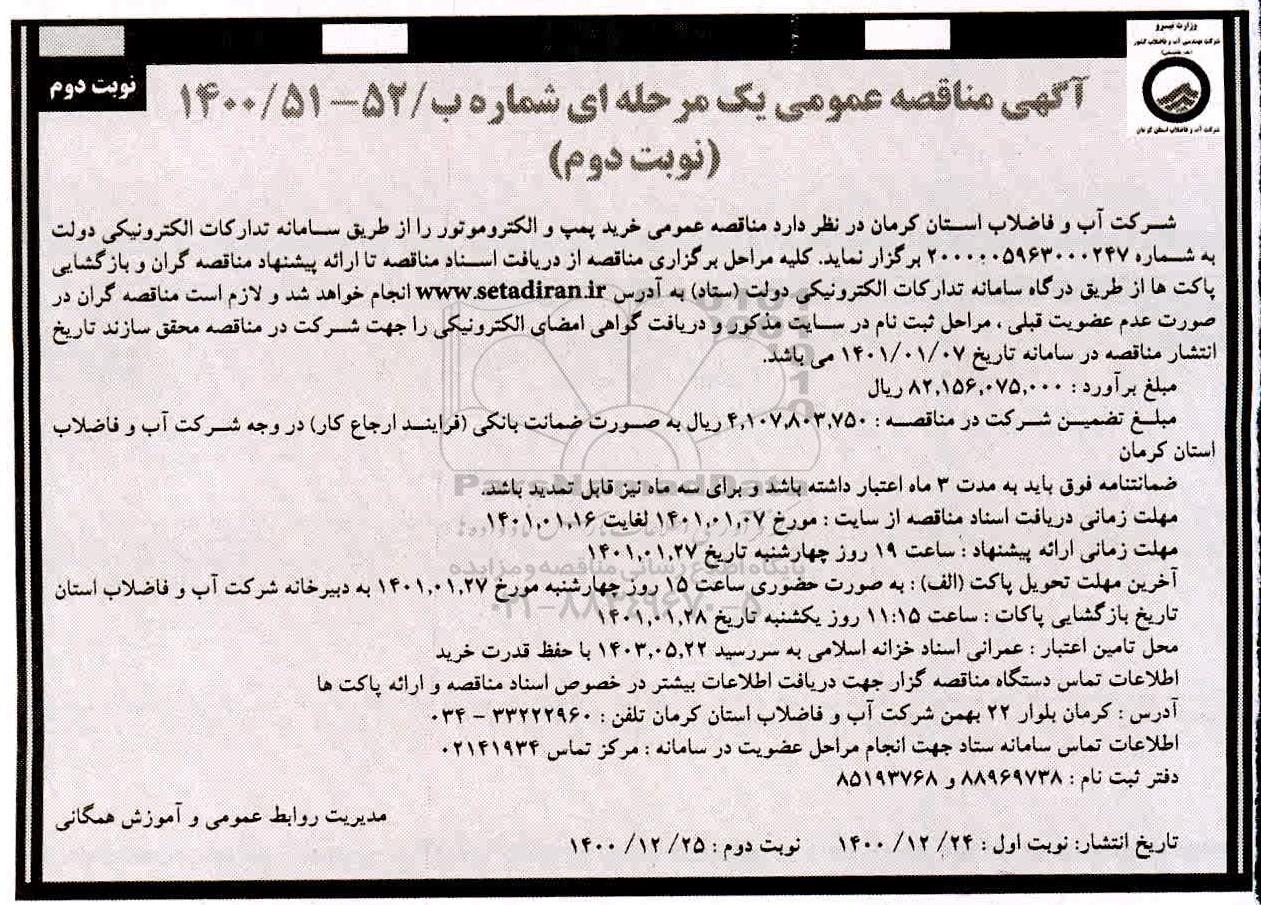 وزارت نیرو
شرکت مهندسی آب و فاضلاب کشور
شرکت آب و فاضلاب استان کرمان
نوبت دوم
آگهی مناقصه عمومی یک مرحله ای شماره ب/۵۲-۱۴۰۰/۵۱
(نوبت دوم)
شرکت آب و فاضلاب استان کرمان در نظر دارد مناقصه عمومی خرید پمپ و الکتروموتور را از طریق سامانه تدارکات الکترونیکی دولت
به شماره ۲۰۰۰۰۰۵۹۶۳۰۰۰۲۴۷ برگزار نماید. کلیه مراحل برگزاری مناقصه از دریافت اسناد مناقصه تا ارائه پیشنهاد مناقصه گران و بازگشایی
پاکت ها از طریق درگاه سامانه تدارکات الکترونیکی دولت (ستاد) به آدرس www.setadiran.ir انجام خواهد شد و لازم است مناقصه گران در
صورت عدم عضویت قبلی ، مراحل ثبت نام در سایت مذکور و دریافت گواهی امضای الکترونیکی را جهت شرکت در مناقصه محقق سازند تاریخ
انتشار مناقصه در سامانه تاریخ ۱۴۰۱/۰۱/۰۷ می باشد.
مبلغ برآورد : ۸۲,۱۵۶,۰۷۵,۰۰۰ ریال
مبلغ تضمین شرکت در مناقصه : ۴,۱۰۷,۸۰۳,۷۵۰ ریال به صورت ضمانت بانکی (فرایند ارجاع کار) در وجه شرکت آب و فاضلاب
استان کرمان
ضمانتنامه فوق باید به مدت ۳ ماه اعتبار داشته باشد و برای سه ماه نیز قابل تمدید باشد.
مهلت زمانی دریافت اسناد مناقصه از سایت : مورخ ۱۴۰۱,۰۱,۰۷ لغایت ۱۴۰۱,۰۱,۱۶
مهلت زمانی ارائه پیشنهاد : ساعت ۱۹ روز چهارشنبه تاریخ ۱۴۰۱,۰۱,۲۷
آخرین مهلت تحویل پاکت (الف) : به صورت حضوری ساعت ۱۵ روز چهارشنبه مورخ ۱۴۰۱,۰۱,۲۷ به دبیرخانه شرکت آب و فاضلاب استان
تاریخ بازگشایی پاکات : ساعت ۱۱:۱۵ روز یکشنبه تاریخ ۱۴۰۱,۰۱,۲۸
محل تامین اعتبار : عمرانی اسناد خزانه اسلامی به سررسید ۱۴۰۳,۰۵,۲۲ با حفظ قدرت خرید
اطلاعات تماس دستگاه مناقصه گزار جهت دریافت اطلاعات بیشتر در خصوص اسناد مناقصه و ارائه پاکت ها
آدرس : کرمان بلوار ۲۲ بهمن شرکت آب و فاضلاب استان کرمان تلفن : ۳۳۲۲۲۹۶۰ - ۰۳۴
اطلاعات تماس سامانه ستاد جهت انجام مراحل عضویت در سامانه : مرکز تماس ۰۲۱۴۱۹۳۴
دفتر ثبت نام : ۸۸۹۶۹۷۳۸ و ۸۵۱۹۳۷۶۸
مدیریت روابط عمومی و آموزش همگانی
تاریخ انتشار: نوبت اول : ۲۴/ ۱۲/ ۱۴۰۰ نوبت دوم : ۲۵/ ۱۲/ ۱۴۰۰
ParsNamadData
پایگاه اطلاع رسانی مناقصه و مزایده
۰۲۱-۸۸۳۴۹۶۷۰-۵